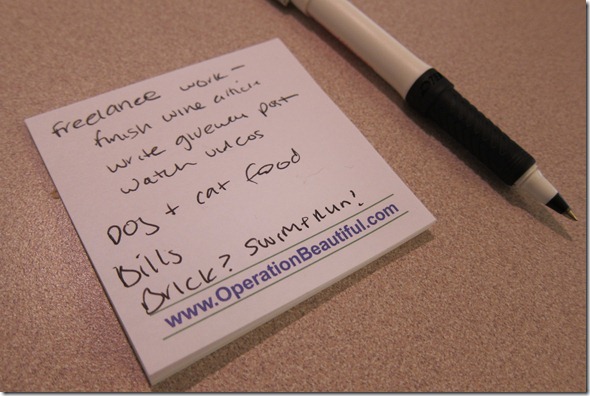 freelance work -
finish wine article
write giveaway post
watch videos
Dog + cat food
Bills
Brick? Swim + Run!
www.OperationBeautiful.com